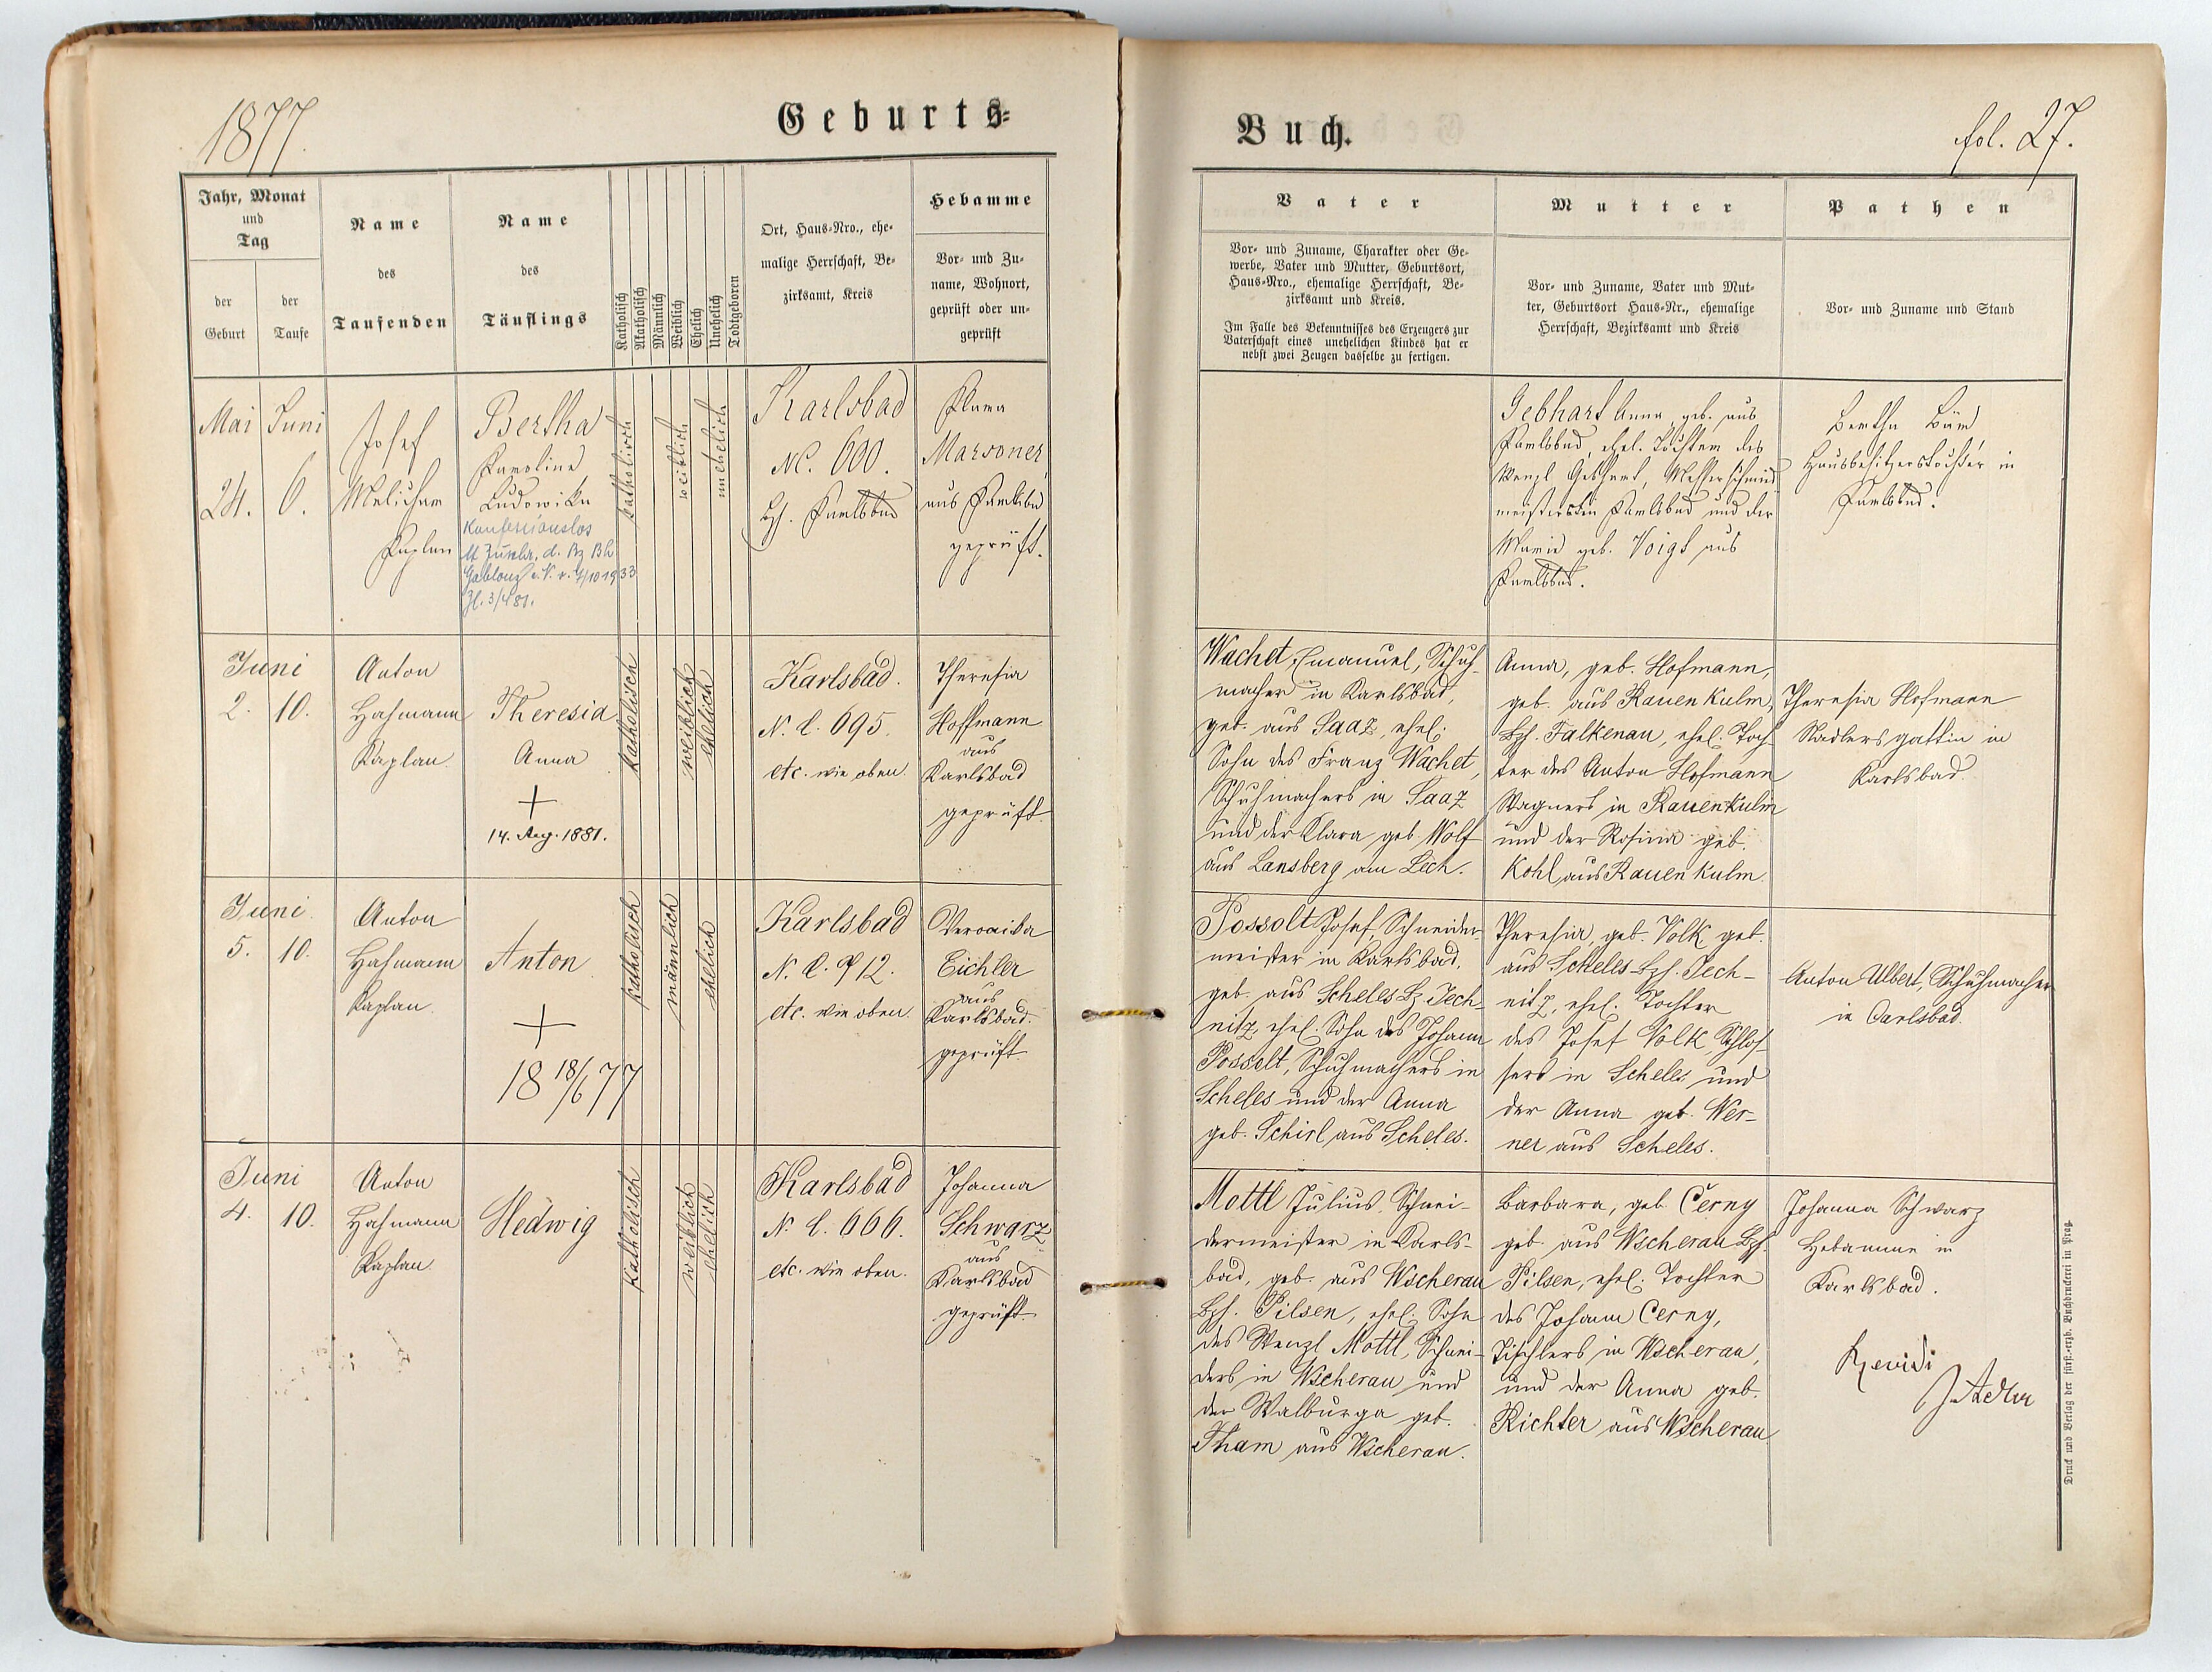 1877.
Geburts-
Jahr, Monat
und
Tag
der
Geburt
der
Taufe
Name
des
Taufenden
Name
des
Täuflings
Katholisch
Akatholisch
Männlich
Weiblich
Ehelich
Unehelich
Todtgeboren
Ort, Haus-Nro., ehe-
malige Herrschaft, Be-
zirksamt, Kreis
Hebamme
Vor- und Zu-
name, Wohnort,
geprüft oder un-
geprüft
Mai
24.
Juni
6.
Josef
Melichar
Kaplan
Bertha
Karolina
Ludowika
Konfessionslos
d. Bz Bh
Gablonz a. N. v. 4/10 1933
Zl. 3/481.
katholisch
weiblich
unehelich
Karlsbad
NC. 600.
Bzh. Karlsbad
Klara
Marsoner
aus Karlsbad
geprüft.
Juni
2. 10.
Anton
Hahmann
Kaplan.
Theresia
Anna
+
14. Aug. 1881.
katholisch
weiblich
ehelich
Karlsbad.
N. C. 695.
etc. wie oben.
Theresia
Hoffmann
aus
Karlsbad
geprüft.
Juni.
5. 10.
Anton
Hahmann
Kaplan.
Anton
+
18 18/6 77
katholisch
männlich
ehelich
Karlsbad
N. C. 912.
etc. wie oben.
Veronika
Eichler
aus
Karlsbad.
geprüft.
Juni
4. 10.
Anton
Hahmann
Kaplan.
Hedwig
katholisch
weiblich
ehelich
Karlsbad
N. C. 666.
etc. wie oben.
Johanna
Schwarz
aus
Karlsbad
geprüft.
Buch.
fol. 27.
Vater
Vor- und Zuname, Charakter oder Ge-
werbe, Vater und Mutter, Geburtsort,
Haus-Nro., ehemalige Herrschaft, Be-
zirksamt und Kreis.
Im Falle des Bekenntnisses des Erzeugers zur
Vaterschaft eines unehelichen Kindes hat er
nebst zwei Zeugen dasselbe zu fertigen.
Mutter
Vor- und Zuname, Vater und Mut-
ter, Geburtsort Haus-Nr., ehemalige
Herrschaft, Bezirksamt und Kreis
Pathen
Vor- und Zuname und Stand
Gebhart Anna, geb. aus
Karlsbad, ehel. Tochter des
Wenzl Gebhart, Messerschmied
meisters in Karlsbad und der
Maria geb. Voigt aus
Karlsbad.
Bertha Bäu
Hausbesitzerstochter in
Karlsbad.
Wachet, Emanuel, Schuh-
macher in Karlsbad,
geb. aus Saaz, ehel.
Sohn des Franz Wachet,
Schuhmachers in Saaz
und der Klara geb. Wolf
aus Lansberg am Lech.
Anna, geb. Hofmann,
geb. aus Rauen Kulm,
Bzh. Falkenau, ehel. Toch-
ter des Anton Hofmann
Wagners in Rauenkulm
und der Rosina geb.
Kohl aus Rauen Kulm.
Theresia Hofmann
Radlersgattin in
Karlsbad.
Possolt Josef, Schneider-
meister in Karlsbad,
geb. aus Scheles Bz Jech-
nitz, ehel. Sohn des Johann
Posselt, Schuhmachers in
Scheles und der Anna
geb. Schirl aus Scheles.
Theresia, geb. Volk geb.
aus Scheles Bzh. Jech-
nitz, ehel. Tochter
des Josef Volk, Schlos-
sers in Scheles und
der Anna geb. Wer-
ner aus Scheles.
Anton Ulbert, Schuhmacher
in Carlsbad.
Mottl Julius, Schnei-
dermeister in Karls-
bad, geb. aus Wscherau
Bzh. Pilsen, ehel. Sohn
des Wenzl Mottl, Schnei-
ders in Wscherau und
der Walburga geb.
Tham aus Wscherau.
Barbara, geb. Černy
geb. aus Wscherau Bzh.
Pilsen, ehel. Tochter
des Johann Cerny,
Tischlers in Wscherau,
und der Anna geb.
Richter aus Wscherau.
Johanna Schwarz
Hebamme in
Karlsbad.
Druck und Verlag der fürst.-erzb. Buchdruckerei in Prag.